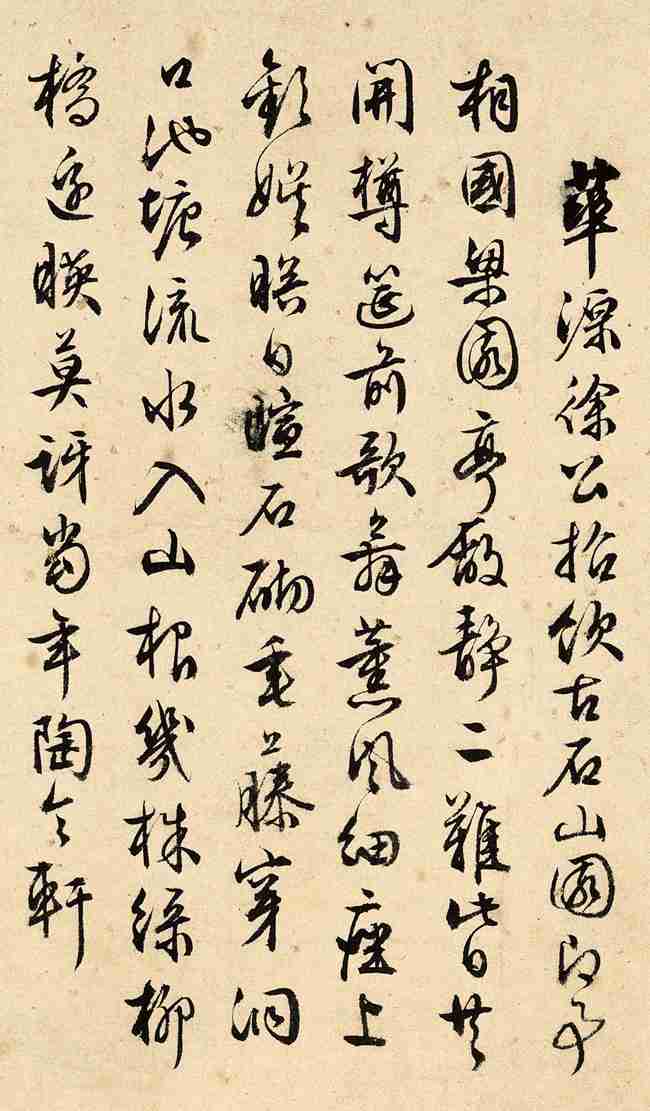 華源徐公招飲古石山園即事
相國梁園靜二難此日共
開樽筵前歌舞薰風細座上
歡娛日暄石砌垂藤穿洞
口池塘流水入山根幾株綠柳
橋邊映莫訝當年陶令軒